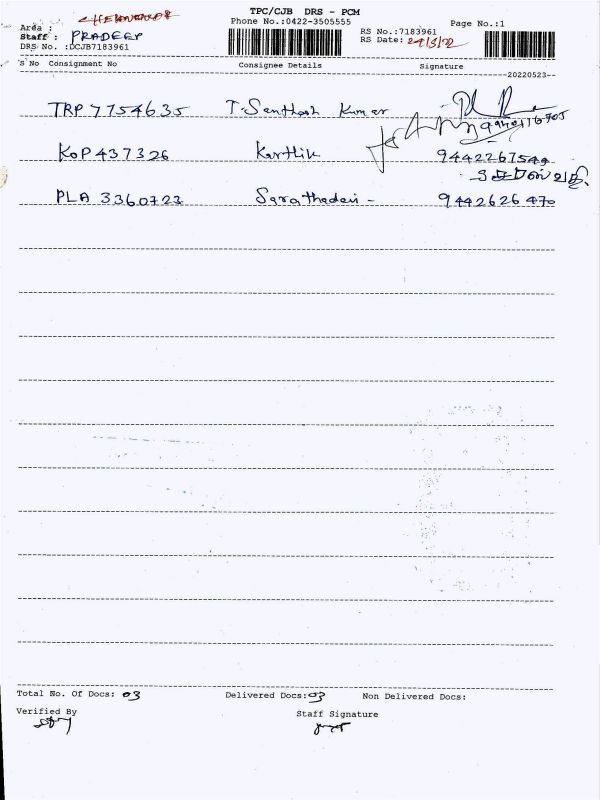 TPC/CJB DRS - PCM
Area :
Phone No.:0422-3505555
Page No.:1
Staff : PRADEEP
RS No.:7183961
DRS No. :DCJB7183961
RS Date: 24/5/22
S No Consignment No Consignee Details Signature
20220523
TRP 7754635 T. Santhosh Kumar
KOP 437326 Karthik 9442267549
PLA 3360723 9442626470
Total No. Of Docs: 03 Delivered Docs:03 Non Delivered Docs:
Verified By Staff Signature